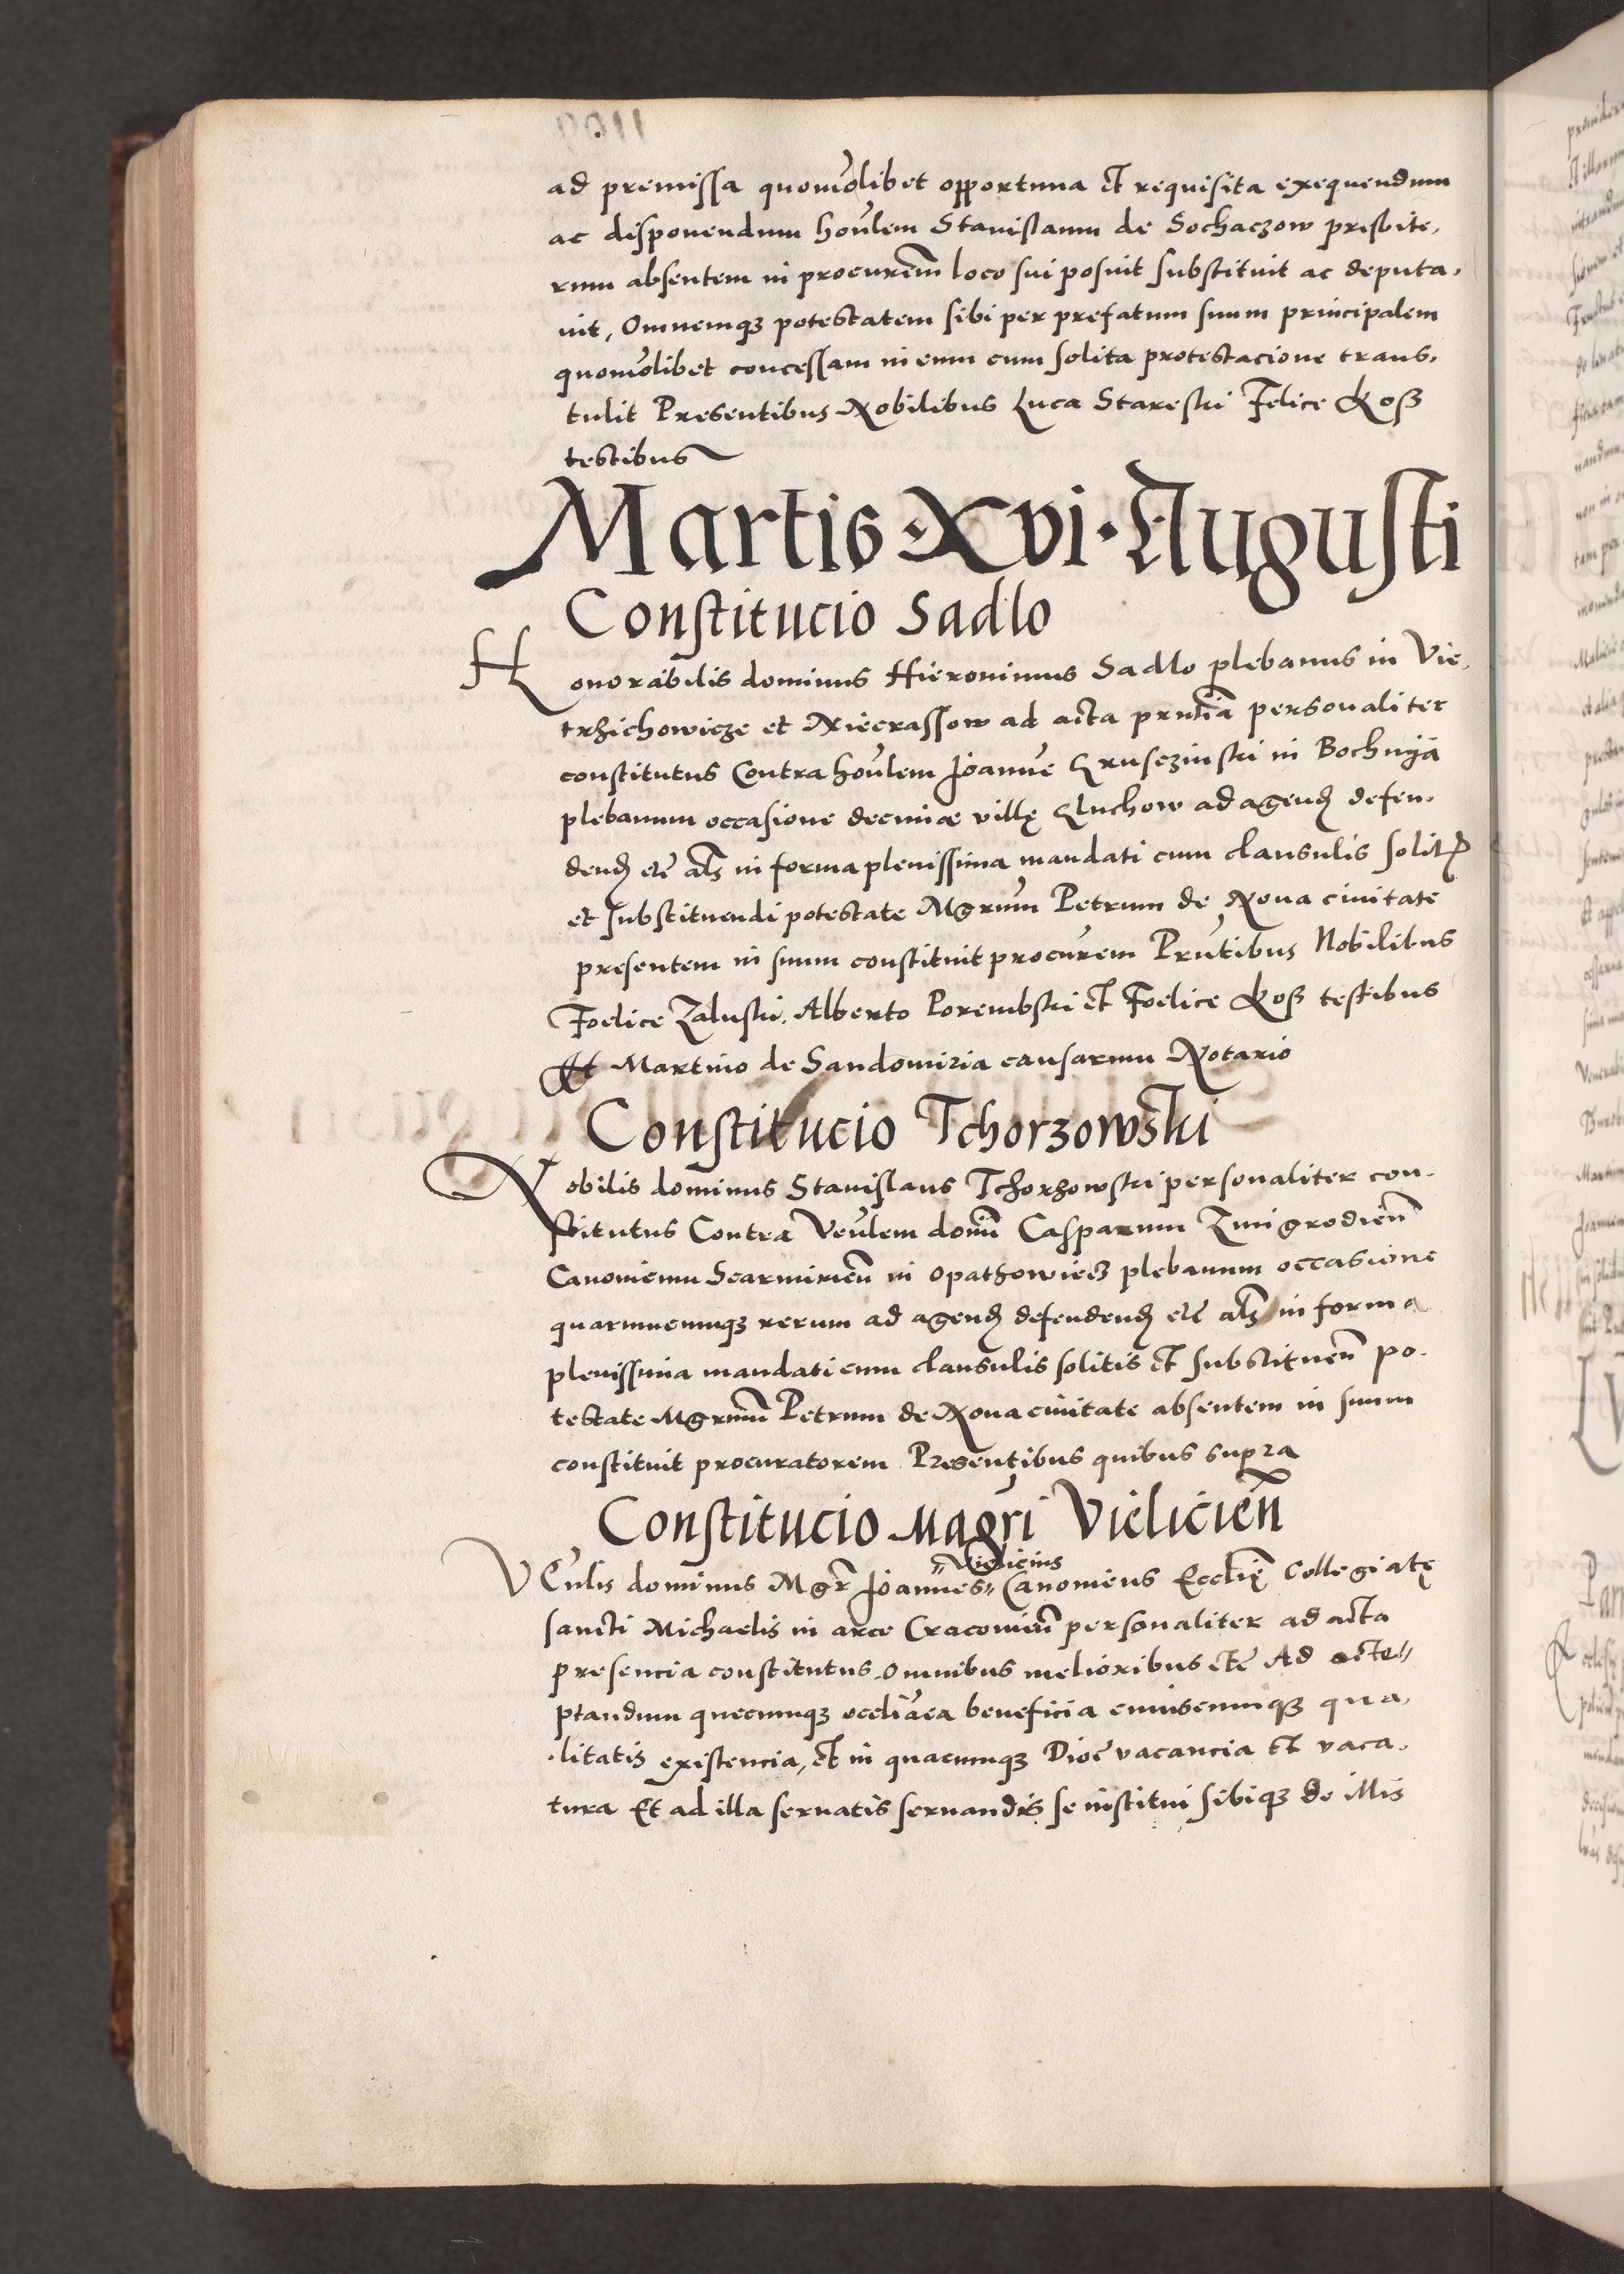 ad premissa quomolibet opportuna et requisita exequendum
ac disponendum honlem Stanislaum de Sochaczow presbite,
rum absentem in procurem loco sui posuit substituit ac deputa,
uit, Omnemqз potestatem sibi per prefatum suum principalem
quomolibet concessam in eum cum solita protestacione trans,
tulit Presentibus Nobilibus Luca Stareski Felice Koß
testibus
Martis · Xvi · Augusti
Constitucio Sadlo
Honorabilis dominus Hieronimus Sadlo plebanus in Vie,
trzichowicze et Niecrassow ad acta prntia personaliter
constitutus Contra honlem Joanne Krusczinski in Bochnya
plebanum occasione decimæ villę Kluchow ad agend defen,
dend etc als in forma plenissima mandati cum clausulis solit
et substituendi potestate Mgrum Petrum de Noua ciuitate
presentem in suum constituit procurem Prntibus Nobilibus
Foelice Zaluski, Alberto Porembski et Foelice Koß testibus
Et Martino de Sandomiria causarum Notario
Constitucio Tchorzowski
Nobilis dominus Stanislaus Tchorzowski personaliter con,
stitutus Contra Venlem domn Casparum Zmigrodien
Canonicum Scarmirien in Opathowiecz plebanum occasione
quarumcumqз rerum ad agend defendend etc als in forma
plenissima mandati cum clausulis solitis et substituen po,
testate Mgrum Petrum de Noua ciuitate absentem in suum
constituit procuratorem Presentibus quibus supra
Constitucio Magri Vielicien
Vielicius
Venlis dominus Mgr Joannes Canonicus Ecclię Collegiatę
sancti Michaelis in arce Cracouien personaliter ad acta
presencia constitutus omnibus melioribus etc Ad acce
ptandum quecumqз eccliaca beneficia cuiuscumqз qua,
litatis existencia, et in quacumqз Dioc vacancia et vaca,
tura Et ad illa seruatis seruandis se institui sibiqз de illis